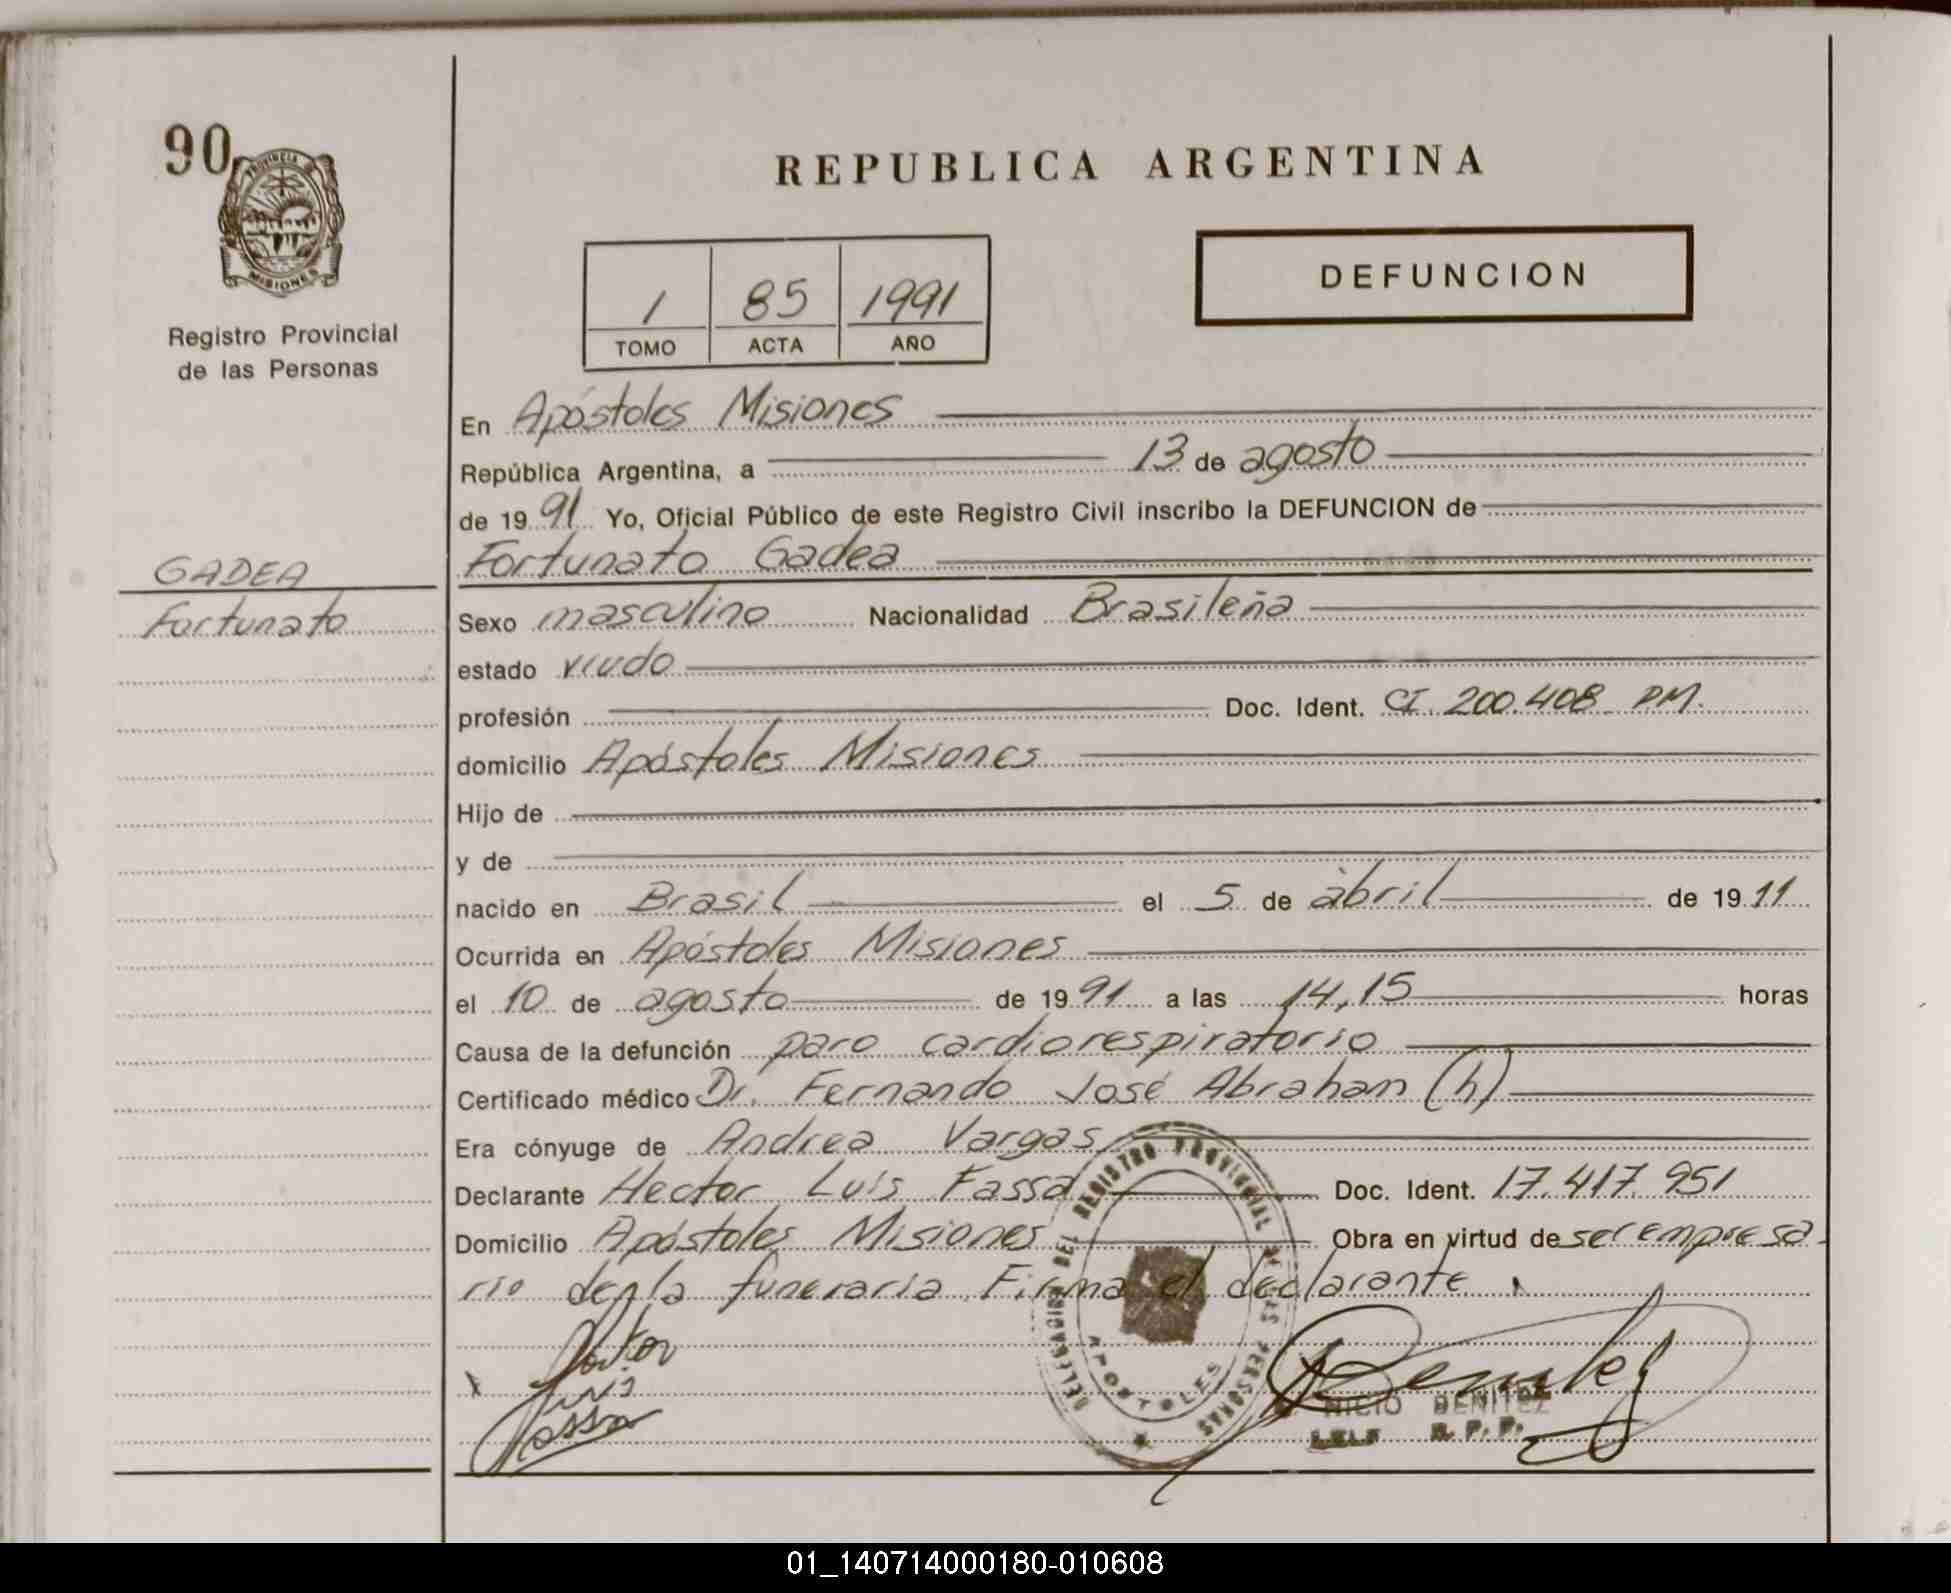 90
PROVINCIA
MISIONES
Registro Provincial
de las Personas
REPUBLICA ARGENTINA
1 85 1991
TOMO ACTA AÑO
DEFUNCION
En Apóstoles Misiones
República Argentina, a 13 de agosto
de 19 91 Yo, Oficial Público de este Registro Civil inscribo la DEFUNCION de
GADEA
Fortunato
Fortunato Gadea
Sexo masculino Nacionalidad Brasileña
estado viudo
profesión Doc. Ident. CI 200.408 PM.
domicilio Apóstoles Misiones
Hijo de
y de
nacido en Brasil el 5 de abril de 19 11
Ocurrida en Apóstoles Misiones
el 10 de agosto de 19 91 a las 14,15 horas
Causa de la defunción paro cardiorespiratorio
Certificado médico Dr. Fernando José Abraham (h)
Era cónyuge de Andrea Vargas
Declarante Hector Luis Fassa Doc. Ident. 17.417.951
Domicilio Apóstoles Misiones Obra en virtud de ser empresa-
rio de la funeraria Firma el declarante.
DELEGACION DEL REGISTRO PROVINCIAL DE LAS PERSONAS
APOSTOLES
Luis
Fassa
BENITEZ
R. P. P.
01_140714000180-010608